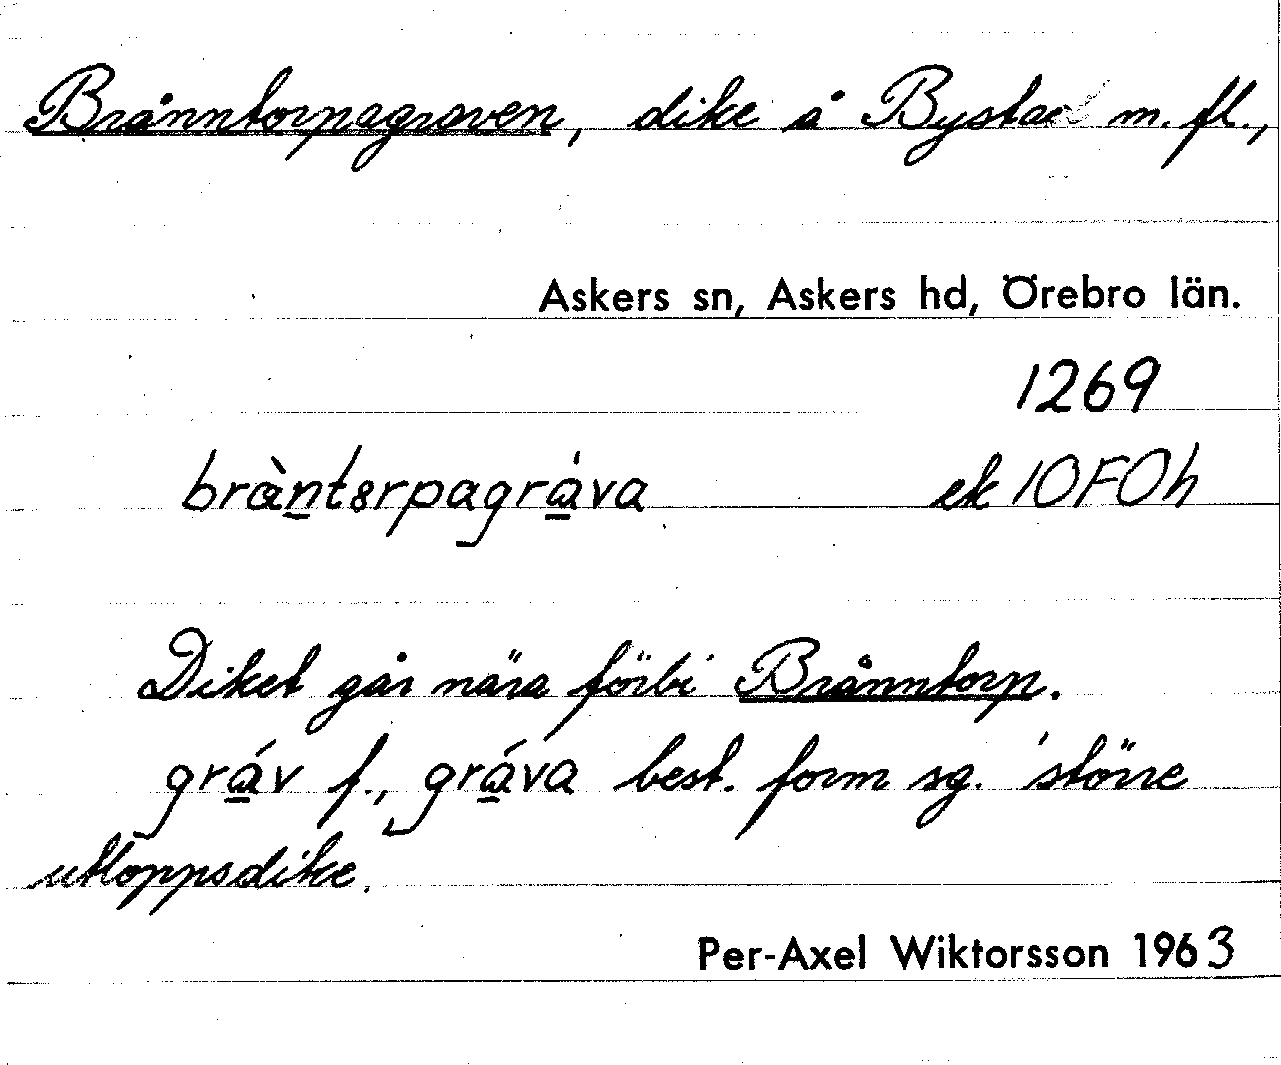 Brånntorpagraven, dike å Bystad m. fl.,
Askers sn, Askers hd, Örebro län.
1269
bràntɘrpagráva ek 10F0h
Diket går nära förbi Brånntorp.
gráv f., gráva best. form sg. 'större
utloppsdike.
Per-Axel Wiktorsson 1963